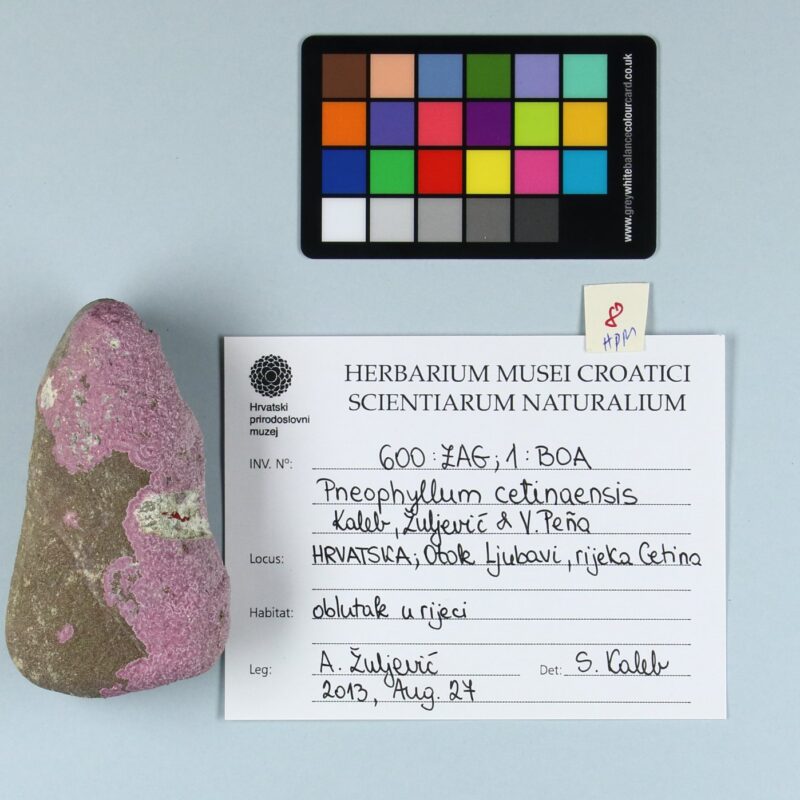 www.greywhitebalancecolourcard.co.uk
8
HPM
Hrvatski
prirodoslovni
muzej
HERBARIUM MUSEI CROATICI
SCIENTIARUM NATURALIUM
INV. Nº: 600:ZAG;1:BOA
Pneophyllum cetinaensis
Kaleb, Žuljević & V. Peña
Locus: HRVATSKA; Otok Ljubavi, rijeka Cetina
Habitat: oblutak u rijeci
Leg: A. Žuljević Det: S. Kaleb
2013, Aug. 27